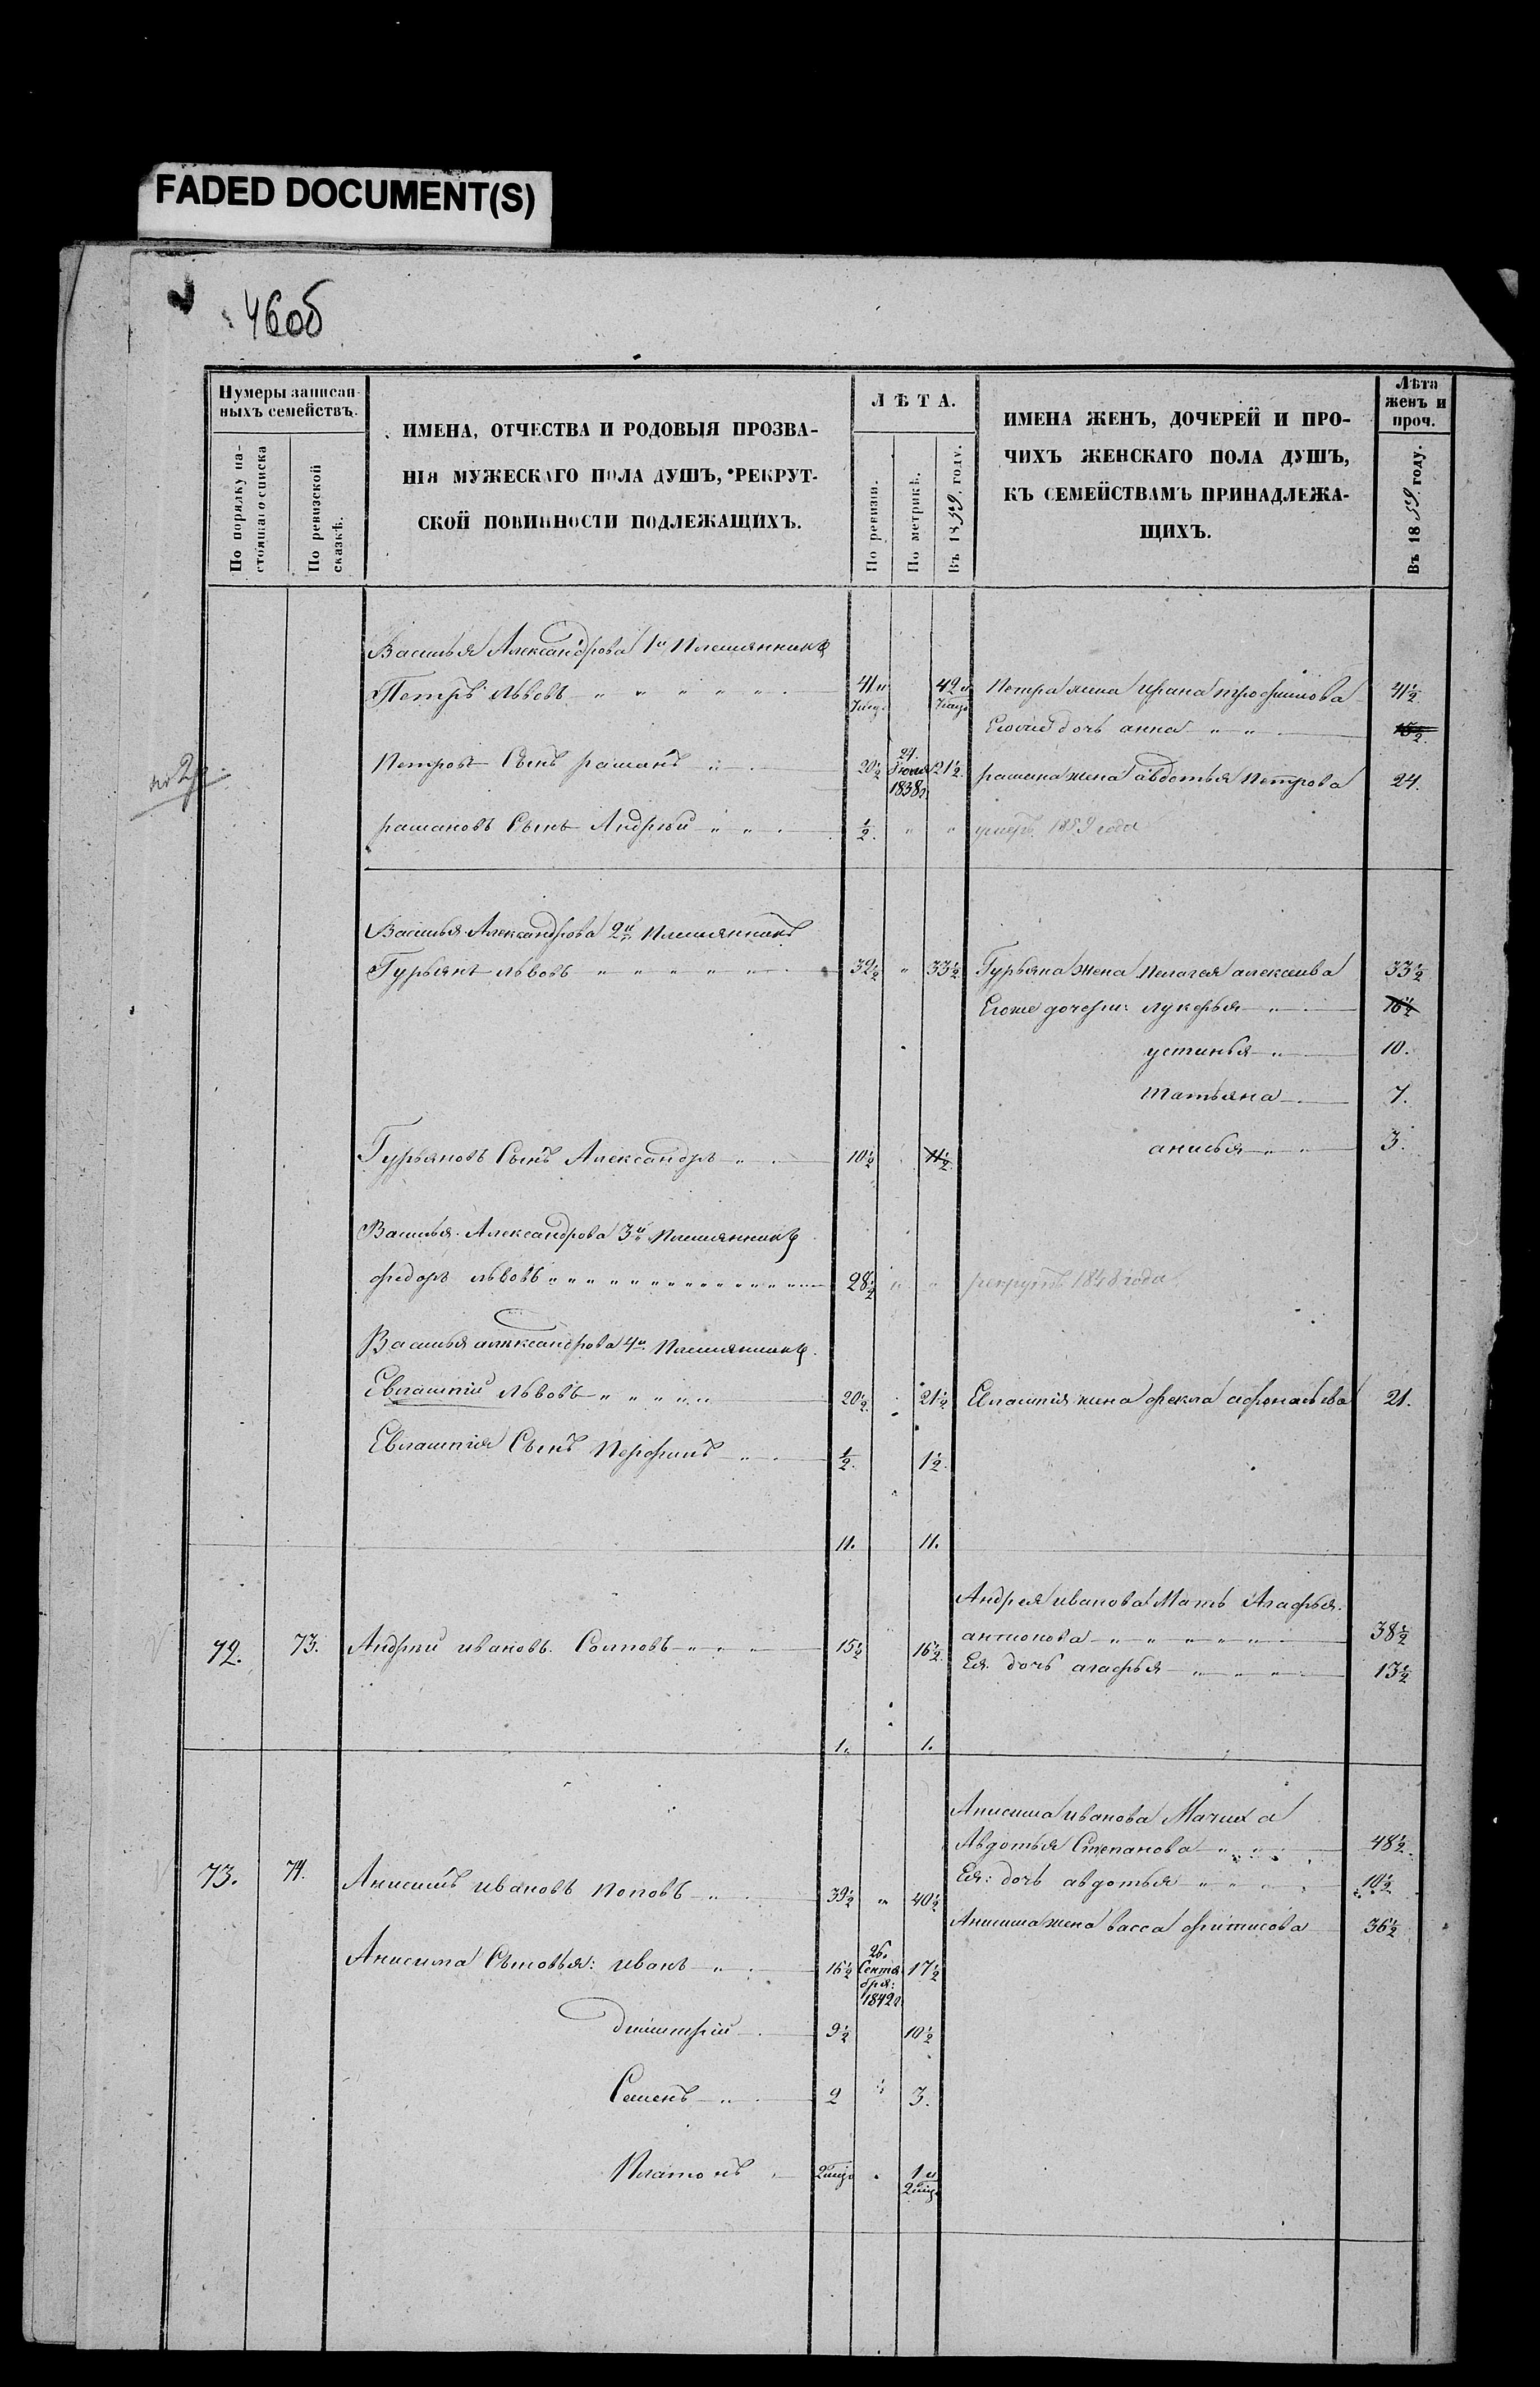 FADED DOCUMENT(S)
46об
Нумеры записан-
ныхъ семействъ.
По порядку на-
стоящаго списка
По ревизской
сказкѣ.
ИМЕНА, ОТЧЕСТВА И РОДОВЫЯ ПРОЗВА-
НІЯ МУЖЕСКАГО ПОЛА ДУШЪ, РЕКРУТ-
СКОЙ ПОВИННОСТИ ПОДЛЕЖАЩИХЪ.
ЛѢТА.
По ревизіи.
По метрикѣ.
Въ 1859 году.
ИМЕНА ЖЕНЪ, ДОЧЕРЕЙ И ПРО-
ЧИХЪ ЖЕНСКАГО ПОЛА ДУШЪ,
КЪ СЕМЕЙСТВАМЪ ПРИНАДЛЕЖА-
ЩИХЪ.
Лѣта
женъ и
проч.
Въ 1859 году.
Василья Александрова 1й Племянникъ
Петръ Львовъ 41 и 7 мѣц. 42 и 7 мѣц. Петра жена трофимова 41½
Егоже дочь анна 15½
Петровъ Сынъ раманъ 20½ 24. Іюля 1838г. 21½ рамана жена авдотья Петрова 24.
рамановъ Сынъ Андрей ½ " " умеръ 1859 года
Василья Александрова 2й Племянникъ
Гурьянъ Львовъ 32½ " 33½ Гурьяна жена Пелагея алексеева 33½
Егоже дочери: лукерья 16½
устинья 10.
татьяна 7.
анисья 3.
Гурьяновъ Сынъ Александръ 10½ 11½
Василья Александрова 3й Племянникъ
федоръ львовъ 28½ " " рекрутъ 1858 года
Василья александрова 4й Племянникъ
Евлампій Львовъ 20½ 21½ Евлампія жена фекла афонасьева 21.
Евлампія Сынъ Перфилъ ½ 1½
11. 11.
Андрея иванова Мать Агафья
72. 73. Андрей ивановъ 15½ 16½ антипова 38½
Ея дочь агафья 13½
1. 1.
Анисима иванова Мачиха
Авдотья Степанова 48½
73. 74. Анисимъ ивановъ поповъ 39½ " 40½ Ея: дочь авдотья 10½
Анисима жена васса фитисова 36½
Анисима Сыновья: иванъ 16½ 26. Сентября: 1842г. 17½
дмитрій 9½ 10½
Семенъ 2 3.
Платонъ 2 мѣц. 1 и 2 мѣц.